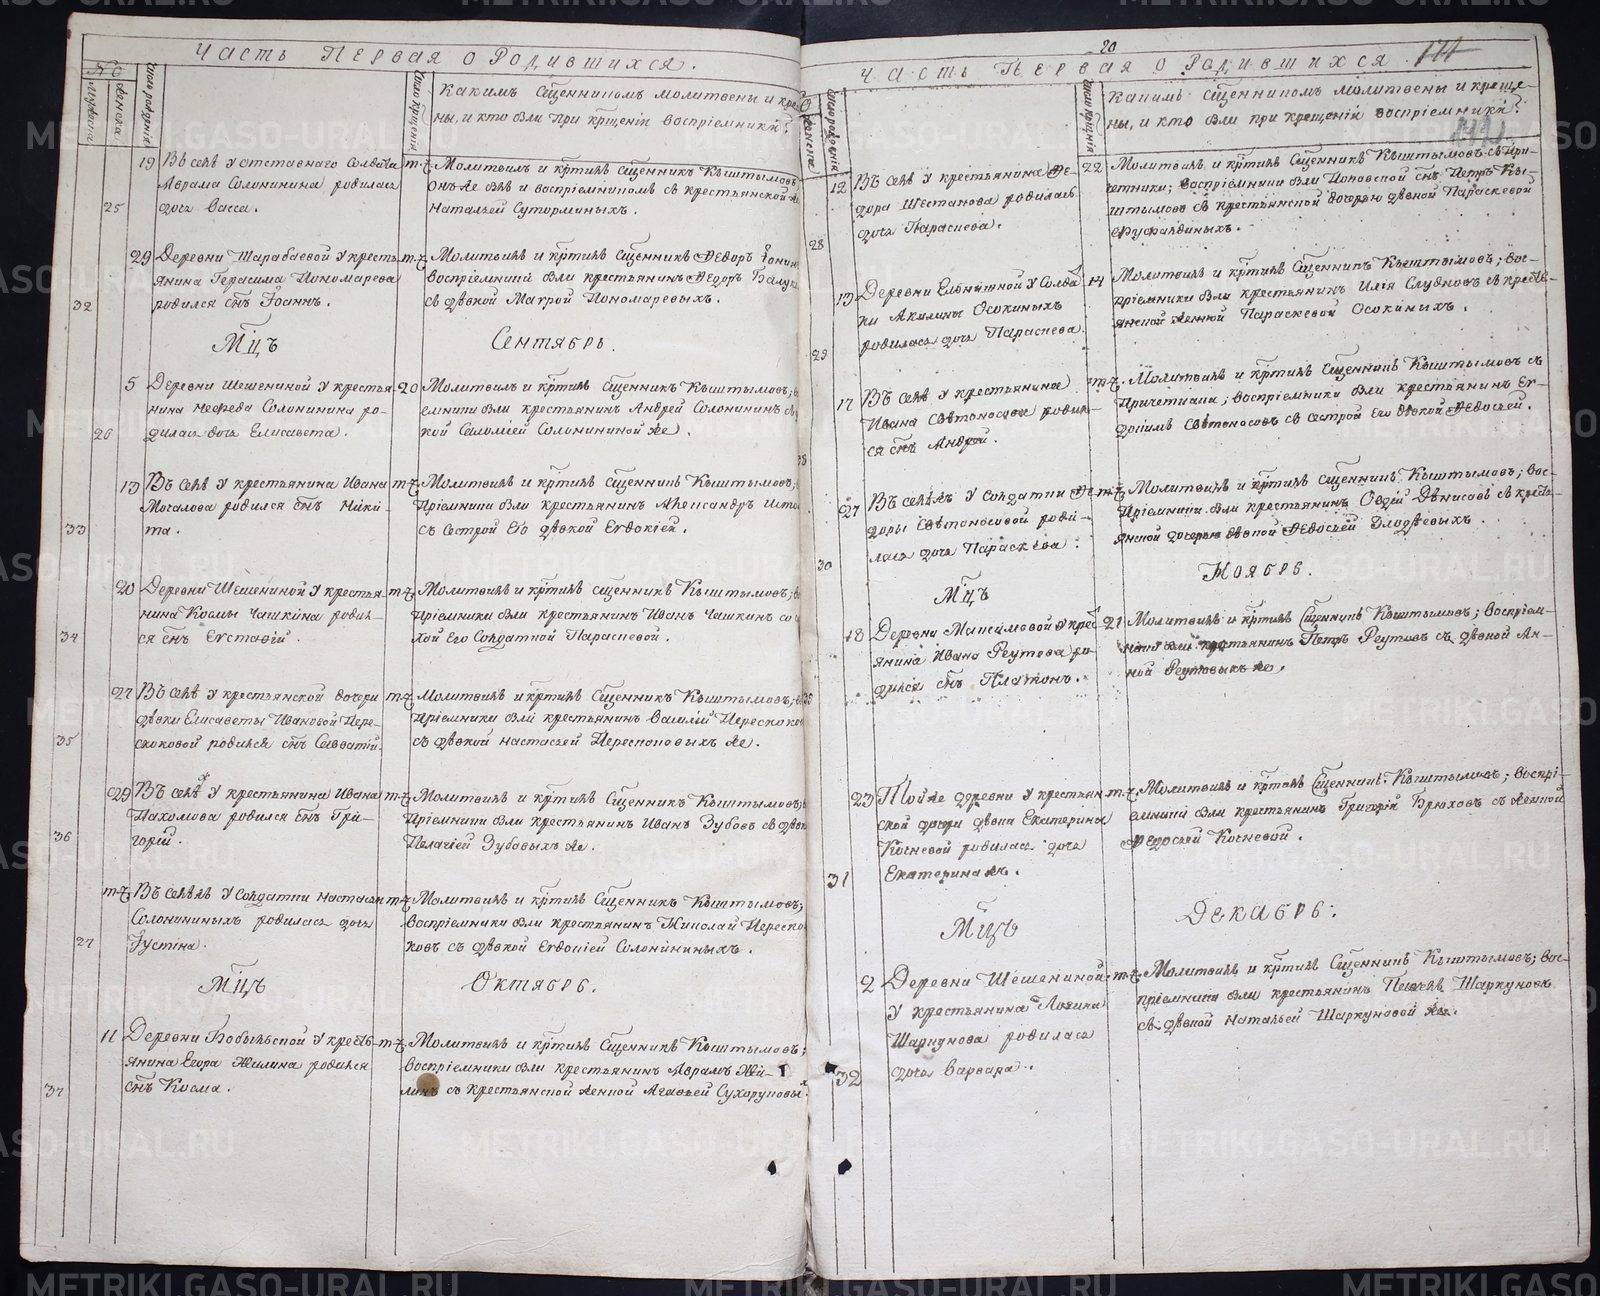 Часть Первая о Родившихся.
№
Мужеска
Женска
Число рождения
Число крещения
Какимъ Сщенникомъ молитвены и кре
ны, и кто были при крщеніи воспріемники?
25
19
Въ селѣ у отставнаго Солдата
Аврама Солонинина родилась
дочь Васса.
т. ч.
Молитвилъ и кртилъ Сщенникъ Кыштымовъ
онъ же былъ и воспріемникомъ съ крестьянской же
Натальей Суторминыхъ.
32
29
Деревни Шарабаевой у кресть
янина Герасима Пономарева
родился снъ Іоаннъ.
т. ч.
Молитвилъ и кртилъ Сщенникъ Ѳедоръ Ѳонин
воспріемники были крестьянинъ Ѳедоръ Балу
съ дѣвкой Макрой Пономаревыхъ.
Мцъ
Сентябрь.
26
5
Деревни Шешениной у крестья
нина Меѳеда Солонинина ро-
дилась дочь Елисавета.
20
Молитвилъ и кртилъ Сщенникъ Кыштымовъ; в
емники были крестьянинъ Андрей Солонининъ съ
кой Саломіей Солонининой же.
33
13
Въ селѣ у крестьянина Ивана
Могалова родился снъ Ники-
та.
т. ч.
Молитвилъ и кртилъ Сщенникъ Кыштымовъ;
пріемники были крестьянинъ Александръ Исто
съ сестрой его дѣвкой Евдокіей.
34
20
Деревни Шешениной у крестья
нина Космы Чашкина родил-
ся снъ Евстафій.
т. ч.
Молитвилъ и кртилъ Сщенникъ Кыштымовъ; в
пріемники были крестьянинъ Иванъ Чашкинъ со
хой его Солдаткой Параскевой.
35
27
Въ селѣ у крестьянской дочери
дѣвки Елисаветы Ивановой Пере-
скоковой родился снъ Савватій.
т. ч.
Молитвилъ и кртилъ Сщенникъ Кыштымовъ;
пріемники были крестьянинъ Василій Перескоков
съ дѣвкой Настасьей Перескоковыхъ же.
36
29
Въ селѣ у крестьянина Ивана
Пахомова родился снъ Гри-
горій.
т. ч.
Молитвилъ и кртилъ Сщенникъ Кыштымовъ;
пріемники были крестьянинъ Иванъ Зубовъ съ дѣвк
Пелагіей Зубовыхъ же.
27
т. ч.
Въ селѣ же у Солдатки Настасьи
Солонининыхъ родилась дочь
Іустіна.
т. ч.
Молитвилъ и кртилъ Сщенникъ Кыштымовъ;
воспріемники были крестьянинъ Николай Переско
ковъ съ дѣвкой Евдокіей Солонининыхъ.
Мцъ
Октябрь.
37
11
Деревни Бобыльской у кресть-
янина Егора Жилина родился
снъ Косма.
т. ч.
Молитвилъ и кртилъ Сщенникъ Кыштымовъ;
воспріемники были крестьянинъ Аврамъ Жи-
линъ съ крестьянской женкой Агафьей Сухоруковы
20
Часть Первая о Родившихся.
Женска
Число рожденія
Число крещенія
Какимъ Сщенникомъ молитвены и креще-
ны, и кто были при крещеніи воспріемники?
28
12
Въ селѣ у крестьянина Ѳе-
дора Шестакова родилась
дочь Параскева.
22
Молитвилъ и кртилъ Сщенникъ Кыштымовъ съ при-
четники; воспріемники были Поповской снъ Петръ Кы-
штымовъ съ крестьянской дочерью дѣвкой Параскевой
29
13
Деревни у Солдат
ки Акилины Осокиныхъ
родилась дочь Параскева.
14
Молитвилъ и кртилъ Сщенникъ Кыштымовъ; вос-
пріемники были крестьянинъ Илія Слудновъ съ кресть-
янской женкой Параскевой Осокиныхъ.
38
17
Въ селѣ у крестьянина
Ивана Свѣтоносова родил-
ся снъ Андрей.
т. ч.
Молитвилъ и кртилъ Сщенникъ Кыштымовъ съ
причетники; воспріемники были крестьянинъ Ге-
оргій Свѣтоносовъ съ сестрой Его дѣвкой Ѳедосьей.
30
27
Въ селѣ же у Солдатки Ѳе
доры Свѣтоносовой роди-
лась дочь Параскева.
т. ч.
Молитвилъ и кртилъ Сщенникъ Кыштымовъ; вос-
пріемники были крестьянинъ Денисовъ съ кресть-
янской дочерью дѣвкой Ѳедосьей
Мцъ
Ноябрь.
18
Деревни Максимовой у крест
янина Ивана Реутова ро-
дился снъ Платонъ.
21
Молитвилъ и кртилъ Сщенникъ Кыштымовъ; воспріем-
ники были крестьянинъ Петръ Реутовъ съ дѣвкой Ан-
ной Реутовыхъ же.
31
23
Той же деревни у крестьян
ской дочери дѣвки Екатерины
Косневой родилась дочь
Екатерина же.
т. ч.
Молитвилъ и кртилъ Сщенникъ Кыштымовъ; воспрі-
емники были крестьянинъ Григорій Брюховъ съ женкой
Ѳедосьей Косневой.
Мцъ
Декабрь.
32
2
Деревни Шешениной
у крестьянина Логина
Шаркунова родилась
дочь Варвара.
т. ч.
Молитвилъ и кртилъ Сщенникъ Кыштымовъ; вос-
пріемники были крестьянинъ Шаркуновъ
съ дѣвкой Натальей Шаркуновой же.
METRIKI.GASO-URAL.RU